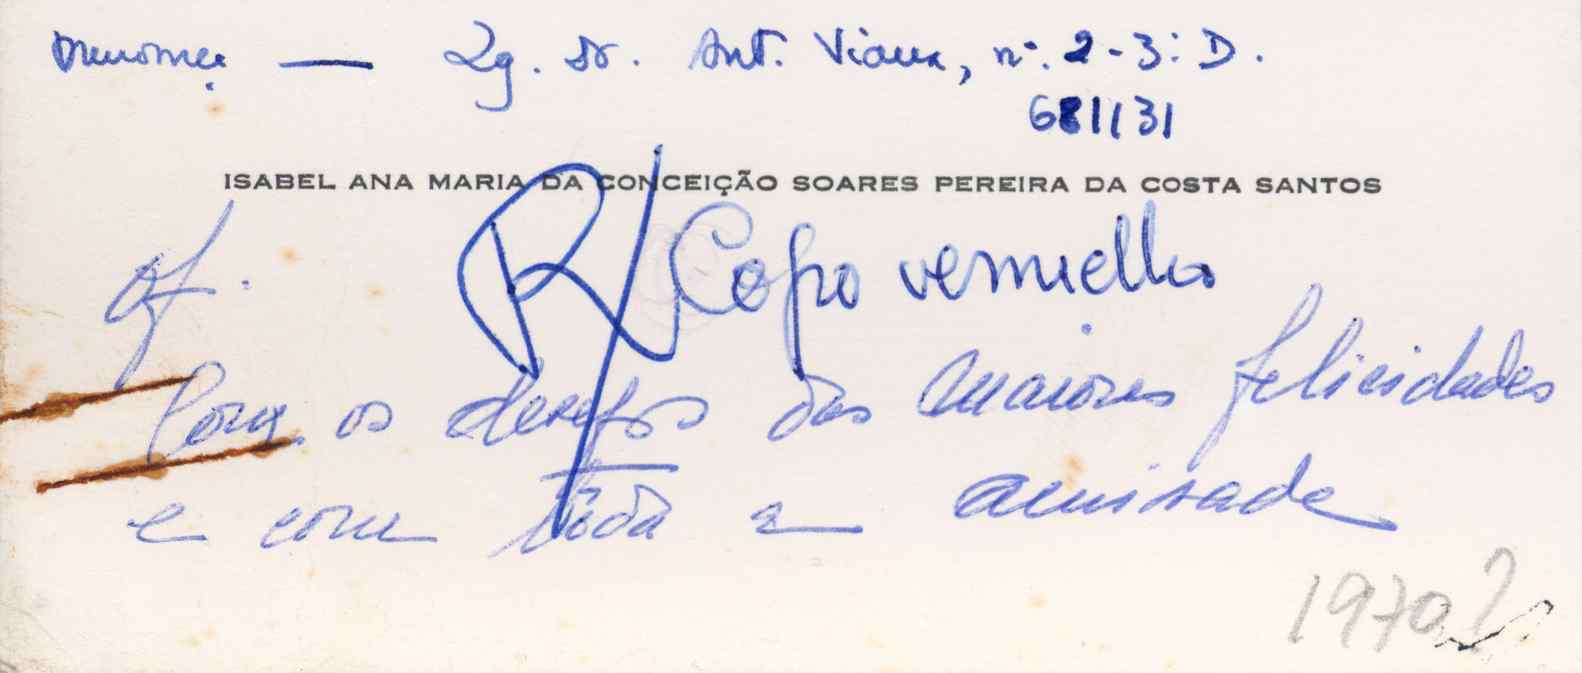 — Lg. Dr. Ant. Viana, nº. 2-3º D.
681131
ISABEL ANA MARIA DA CONCEIÇÃO SOARES PEREIRA DA COSTA SANTOS
R/ Copo vermelho
Of.
Com os desejos das maiores felicidades
e com tôda a amizade
1970?